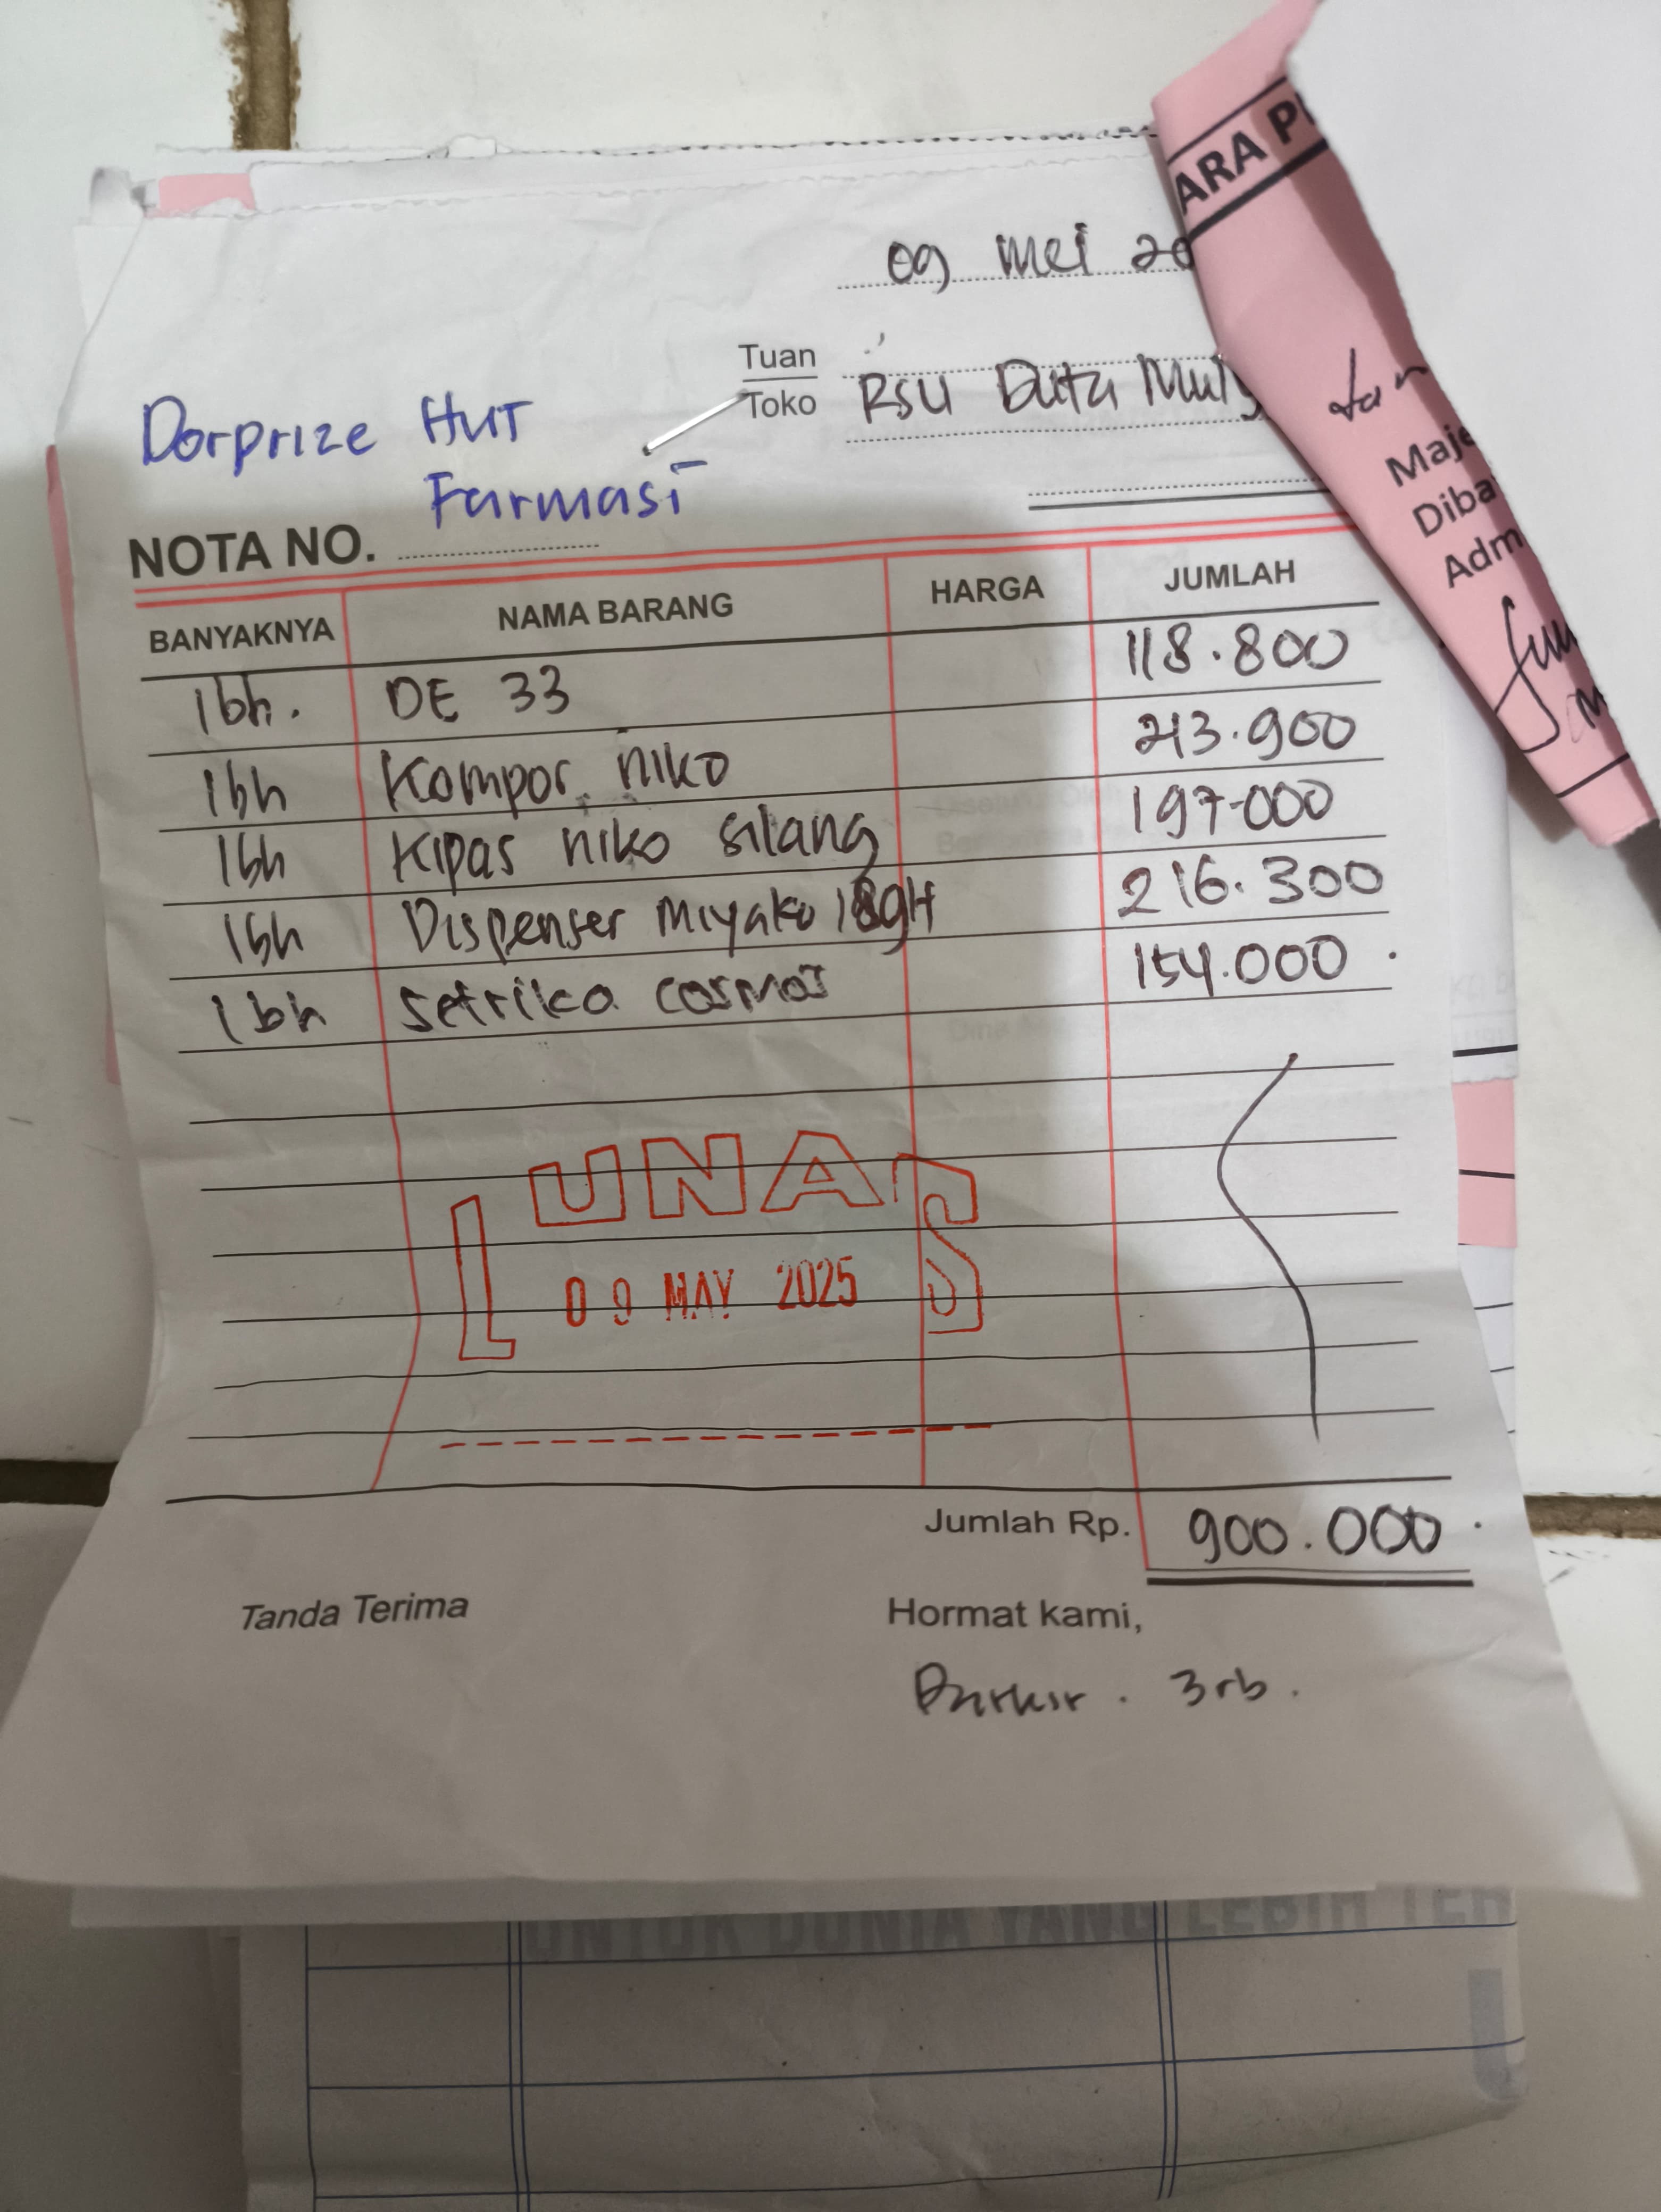 ARA P
09 mei 20
Tuan
Toko
RSU Duta Muly
Dorprize HUT
Farmasi
NOTA NO.
Maje
Diba
Adm
BANYAKNYA NAMA BARANG HARGA JUMLAH
1bh. DE 33 118.800
1bh Kompor niko 213.900
1bh Kipas niko silang 197.000
1bh Dispenser Miyako 189H 216.300
1bh Setrika cosmos 154.000
LUNAS
09 MAY 2025
Jumlah Rp. 900.000
Tanda Terima Hormat kami,
Parkir. 3rb.
UNTUK DUNIA YANG LEBIH TER